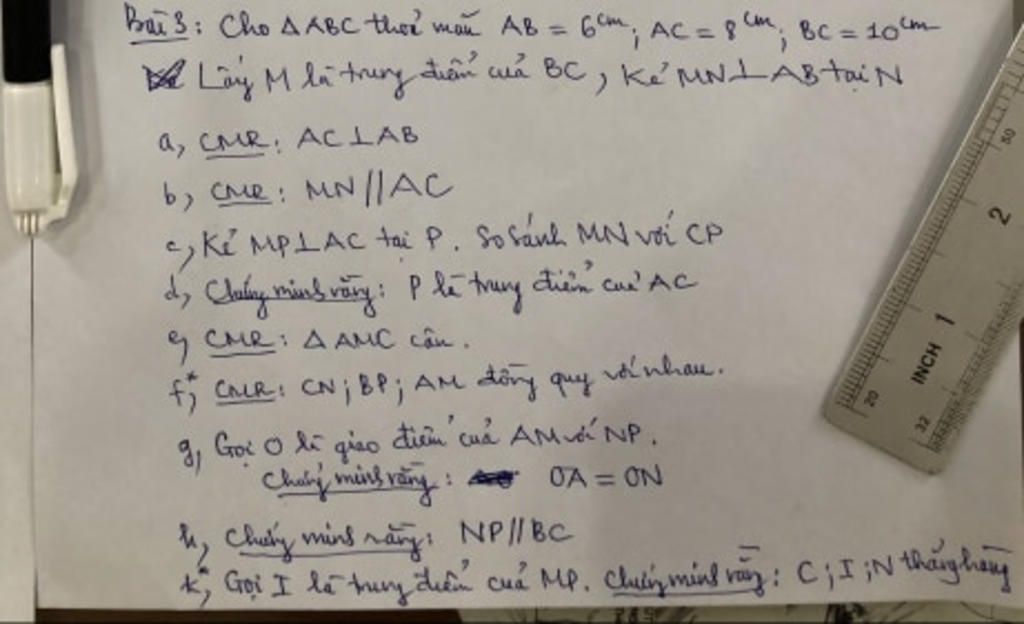 Bài 3: Cho ΔABC thoả mãn AB = 6cm; AC = 8cm; BC = 10cm
Lấy M là trung điểm của BC, Kẻ MN⊥AB tại N
a, CMR: AC⊥AB
b, CMR: MN//AC
c, Kẻ MP⊥AC tại P. So sánh MN với CP
d, Chứng minh rằng: P là trung điểm của AC
e, CMR: Δ AMC cân.
f*, CMR: CN; BP; AM đồng quy với nhau.
g, Gọi O là giao điểm của AM với NP.
Chứng minh rằng: OA = ON
h, Chứng minh rằng: NP//BC
k*, Gọi I là trung điểm của MP. Chứng minh rằng: C; I; N thẳng hàng
20
32
INCH
1
2
50